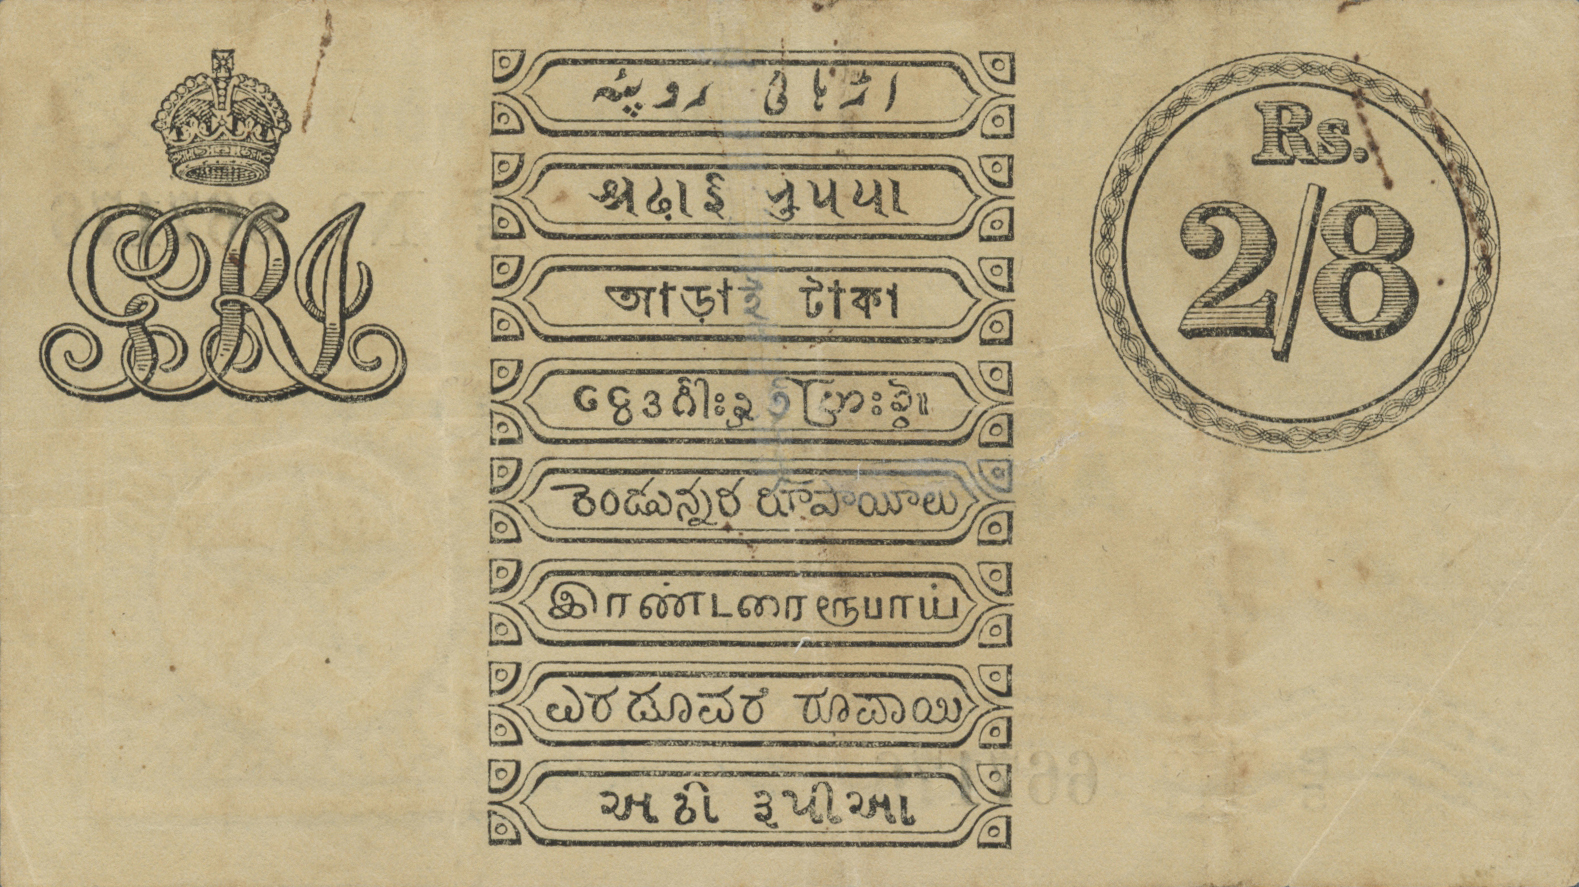 GRI
اڑہائی روپیہ
अढ़ाई रुपया
আড়াই টাকা
రెండున్నర రూపాయీలు
இரண்டரை ரூபாய்
ಎರಡೂವರೆ ರೂಪಾಯಿ
અઢી રૂપીઆ
Rs.
2/8